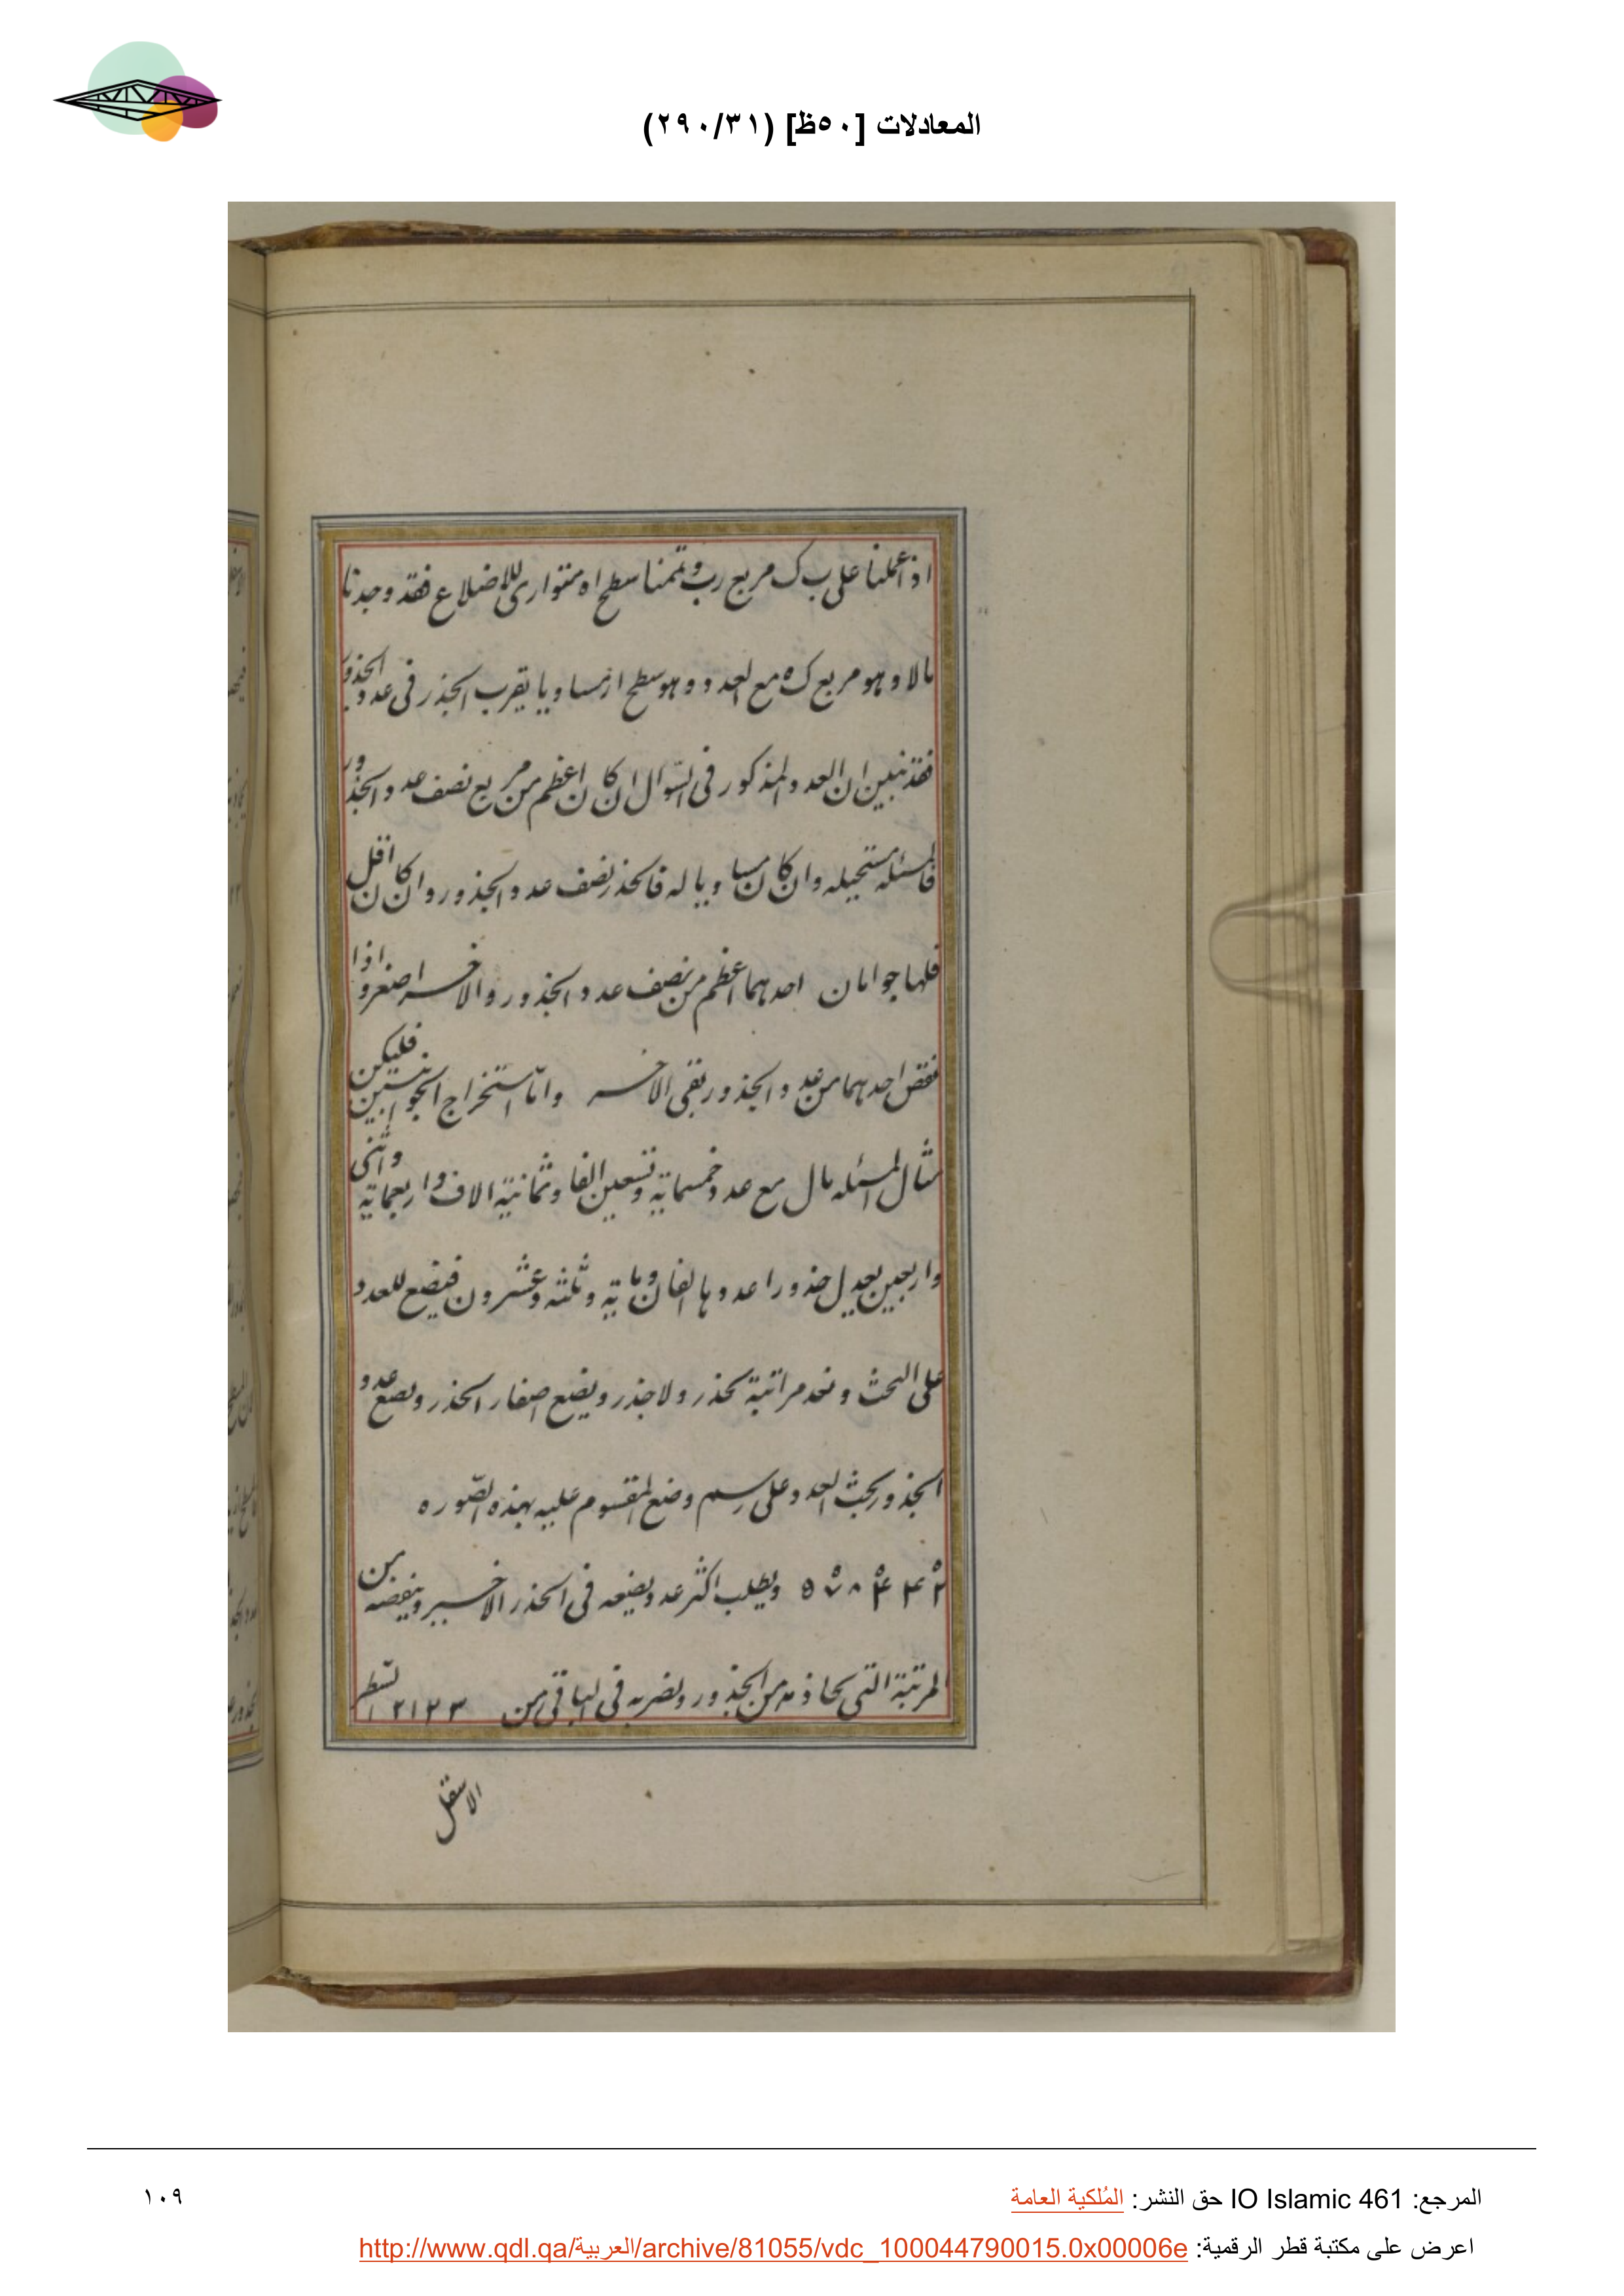 المعادلات [٥٠ظ] (٢٩٠/٣١)
اذ اعملنا على ب ك مربع رب وتممنا سطح اه متوازى للاضلاع فقد وجدنا
مالا وهو مربع ك ه مع العدد وهو سطح از مساويا يقرب الجذر فى عدد الجذور
فقد تبين ان العدد المذكور فى السّوال ان كان اعظم من مربع نصف عدد الجذور
فالمسئله مستحيله وان كان مساويا له فالجذر نصف عدد الجذور وان كان اقل
فلها جوابان احدهما اعظم من نصف عدد الجذور والاخر اصغر واذا
نقص احدهما من عدد الجذور بقى الاخر وامّا استخراج الجوابين فليكن
مثال المسئله مال مع عدد خمسمایة وتسعين الفا وثمانية الاف واربعماية واثنى
واربعين يعدل جذورا عددها الفان وماية وثلثه وعشرون فيضع للعدد
على التخت ونعد مراتبة بجذر ولا جذر ويضع اصفار الجذر ويضع عدد
الجذور بحث العدد على رسم وضع المقسوم عليه بهذه الصّوره
٥٧٨٤٤٢ ويطلب اكثر عدد يضعه فى الجذر الاخير وينقصه من
المرتبة التى يحاذيه من الجذور ويضربه فى الباقى من ٢١٢٣ السّطر
الاسفل
المرجع: IO Islamic 461 حق النشر: المُلكية العامة
١٠٩
اعرض على مكتبة قطر الرقمية: http://www.qdl.qa/العربية/archive/81055/vdc_100044790015.0x00006e